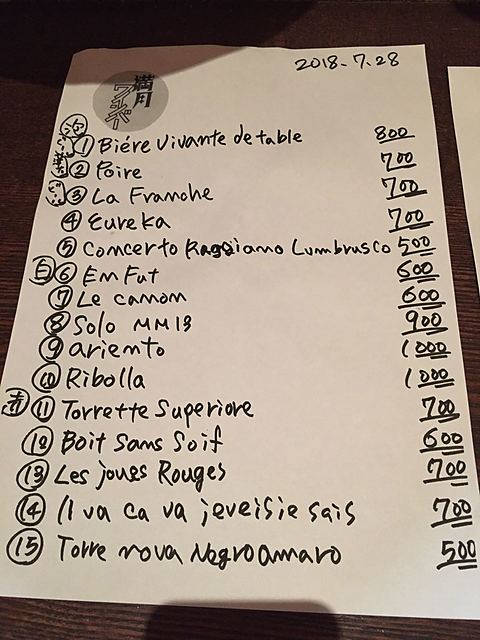 2018.7.28
満月
ワインバー
泡 ① Biére vivante de table 800
② Poire 700
③ La Franche 700
④ Eureka 700
⑤ Concerto Reggiano Lumbrusco 500
白 ⑥ Em Fut 600
⑦ Le camom 600
⑧ Solo MM13 900
⑨ ariento 1000
⑩ Ribolla 1000
赤 ⑪ Torrette Superiore 700
⑫ Boit Sans Soif 600
⑬ Les joues Rouges 700
⑭ Il va ca va jeveisie sais 700
⑮ Torre nova Negroamaro 500